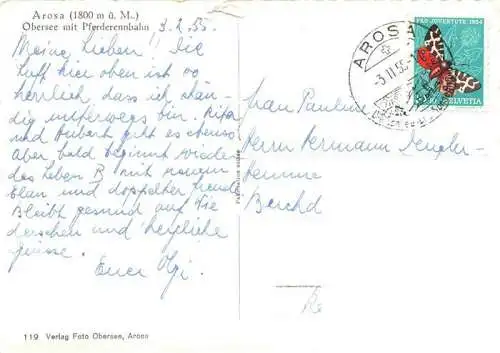 Arosa (1800 m ü. M.)
Obersee mit Pferderennbahn
3.2.55.
Meine Lieben! Die
Luft hier oben ist so
herrlich dass ich stän-
dig unterwegs bin.
und Hubert geht es ebenso
Aber bald beginnt wieder
das Leben B mit neuem
Elan und doppelter Freude
Bleibt gesund auf Wie
dersehen und herzliche
Grüsse.
Euer
119 Verlag Foto Obersee, Arosa
AROSA
-3.II.55-
PRO JUVENTUTE 1954
HELVETIA
Frau Pauline
Herrn Hermann
Berchd